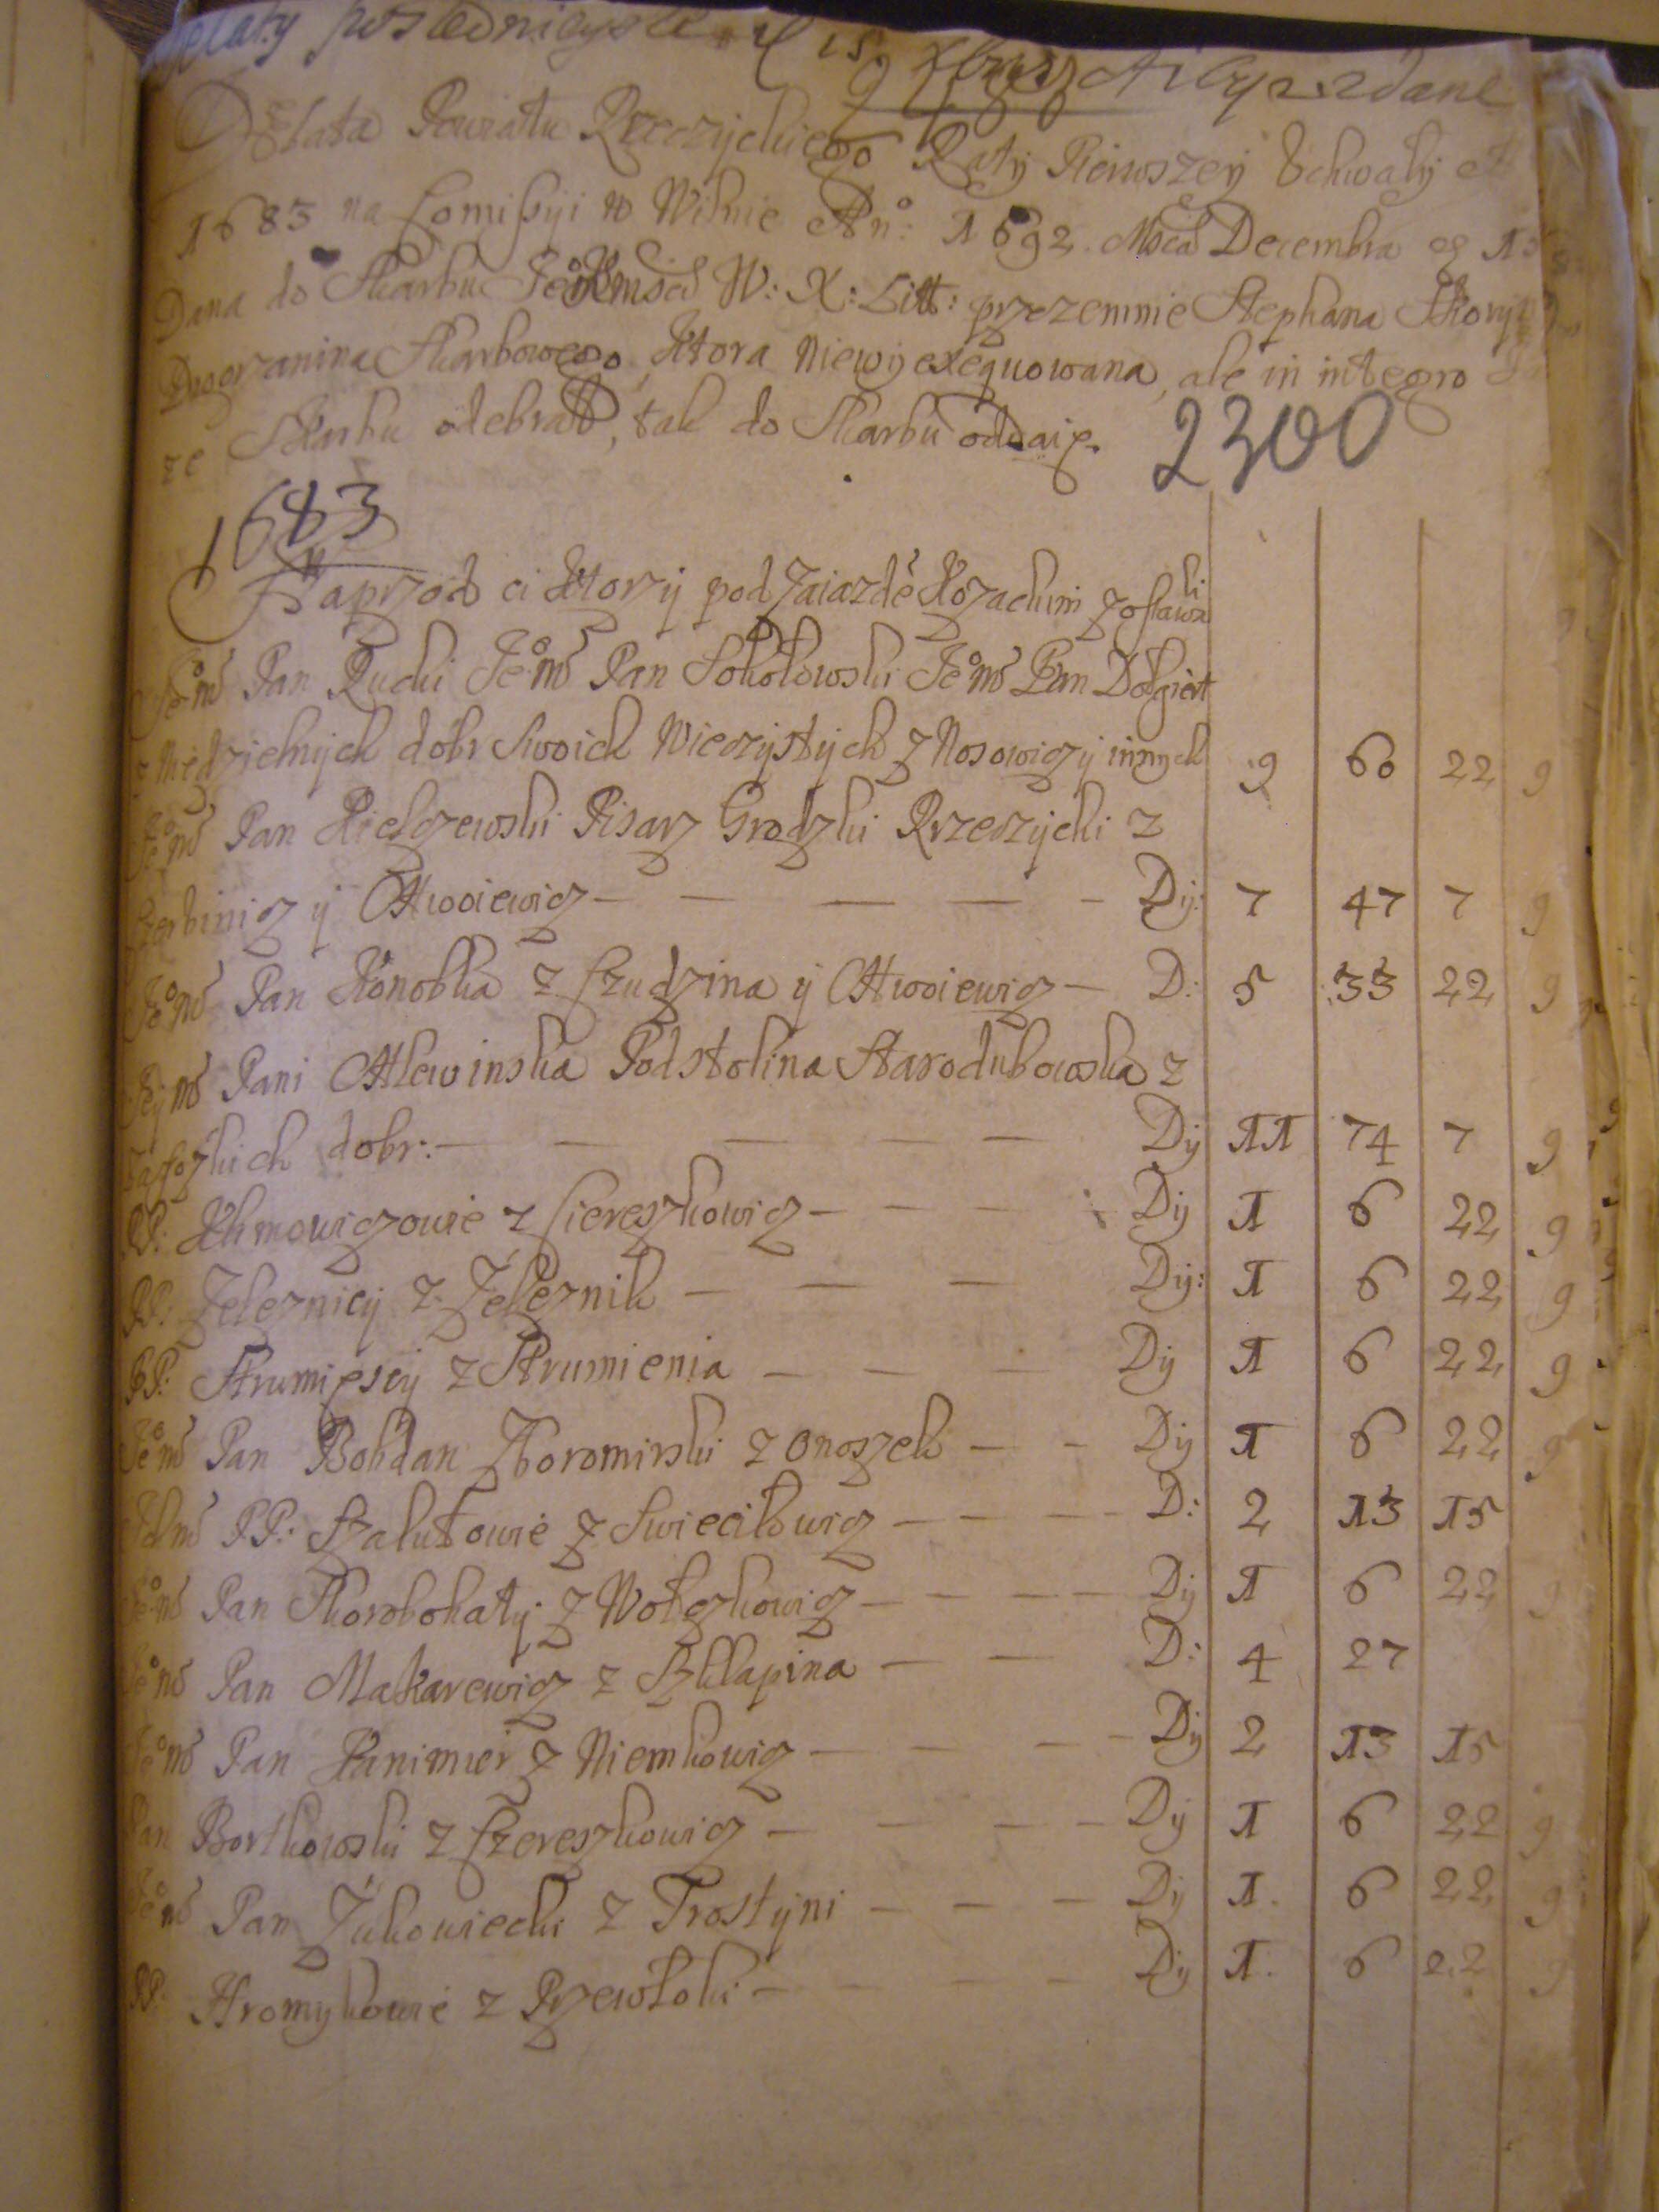 Delata Powiatu Rzeczyckiego Raty Pierwszey Uchwały
1683 na Comissyi w Wilnie An: 1692. Msca Decembra 15
Dana do Skarbu W: X: Litt: przezemnie Stephana
Dworzanina Skarbowego, Ktora niewyexequowana, ale in integro
ze Skarbu odebrał, tak do Skarbu oddaię. 2300
1683
Naprzod ci Ktorzy pod Zaiazdē Kozackim zostawali
Jeͦmś Pan Rucki Jeͦmś Pan Sokołowski Jeͦmś Pan Dołgiert
dobr Swoich Wieczystych z Nosowicz y innych 9 60 22 9
Jeͦmś Pan Kiełczewski Pisarz Grodzki Rzeczycki z
y Chwoiewicz Dy: 7 47 7 9
Jeͦmś Pan Konobka z Czudzina y Chwoiewicz D: 5 33 22 9
Jeymś Pani Chlewinska Podstolina Starodubowska z
dobr: Dy 11 74 7 9
PP: Khmowiczowie z Ciereszkowicz Dy 1 6 22 9
PP: Zeleznicy z Żeleznik Dy: 1 6 22 9
PP: Strumięscy z Strumienia Dy 1 6 22 9
Jeͦmś Pan Bohdan Zboromirski z Onoszek Dy 1 6 22 9
PP: Szalutowie z Swieciłowicz D: 2 13 15
Jeͦmś Pan Skorobohaty z Wołczkowicz Dy 1 6 22 9
Jeͦmś Pan Makarewicz z Szklapina D: 4 27
Jeͦmś Pan Kanimier z Niemkowicz Dy 2 13 15
Pan Bortkowski z Czereszkowicz Dy 1 6 22 9
Jeͦmś Pan Żukowiecki z Trostyni Dy 1. 6 22 9
PP. Hromykowie z Przewłoki Dy 1. 6 22 9